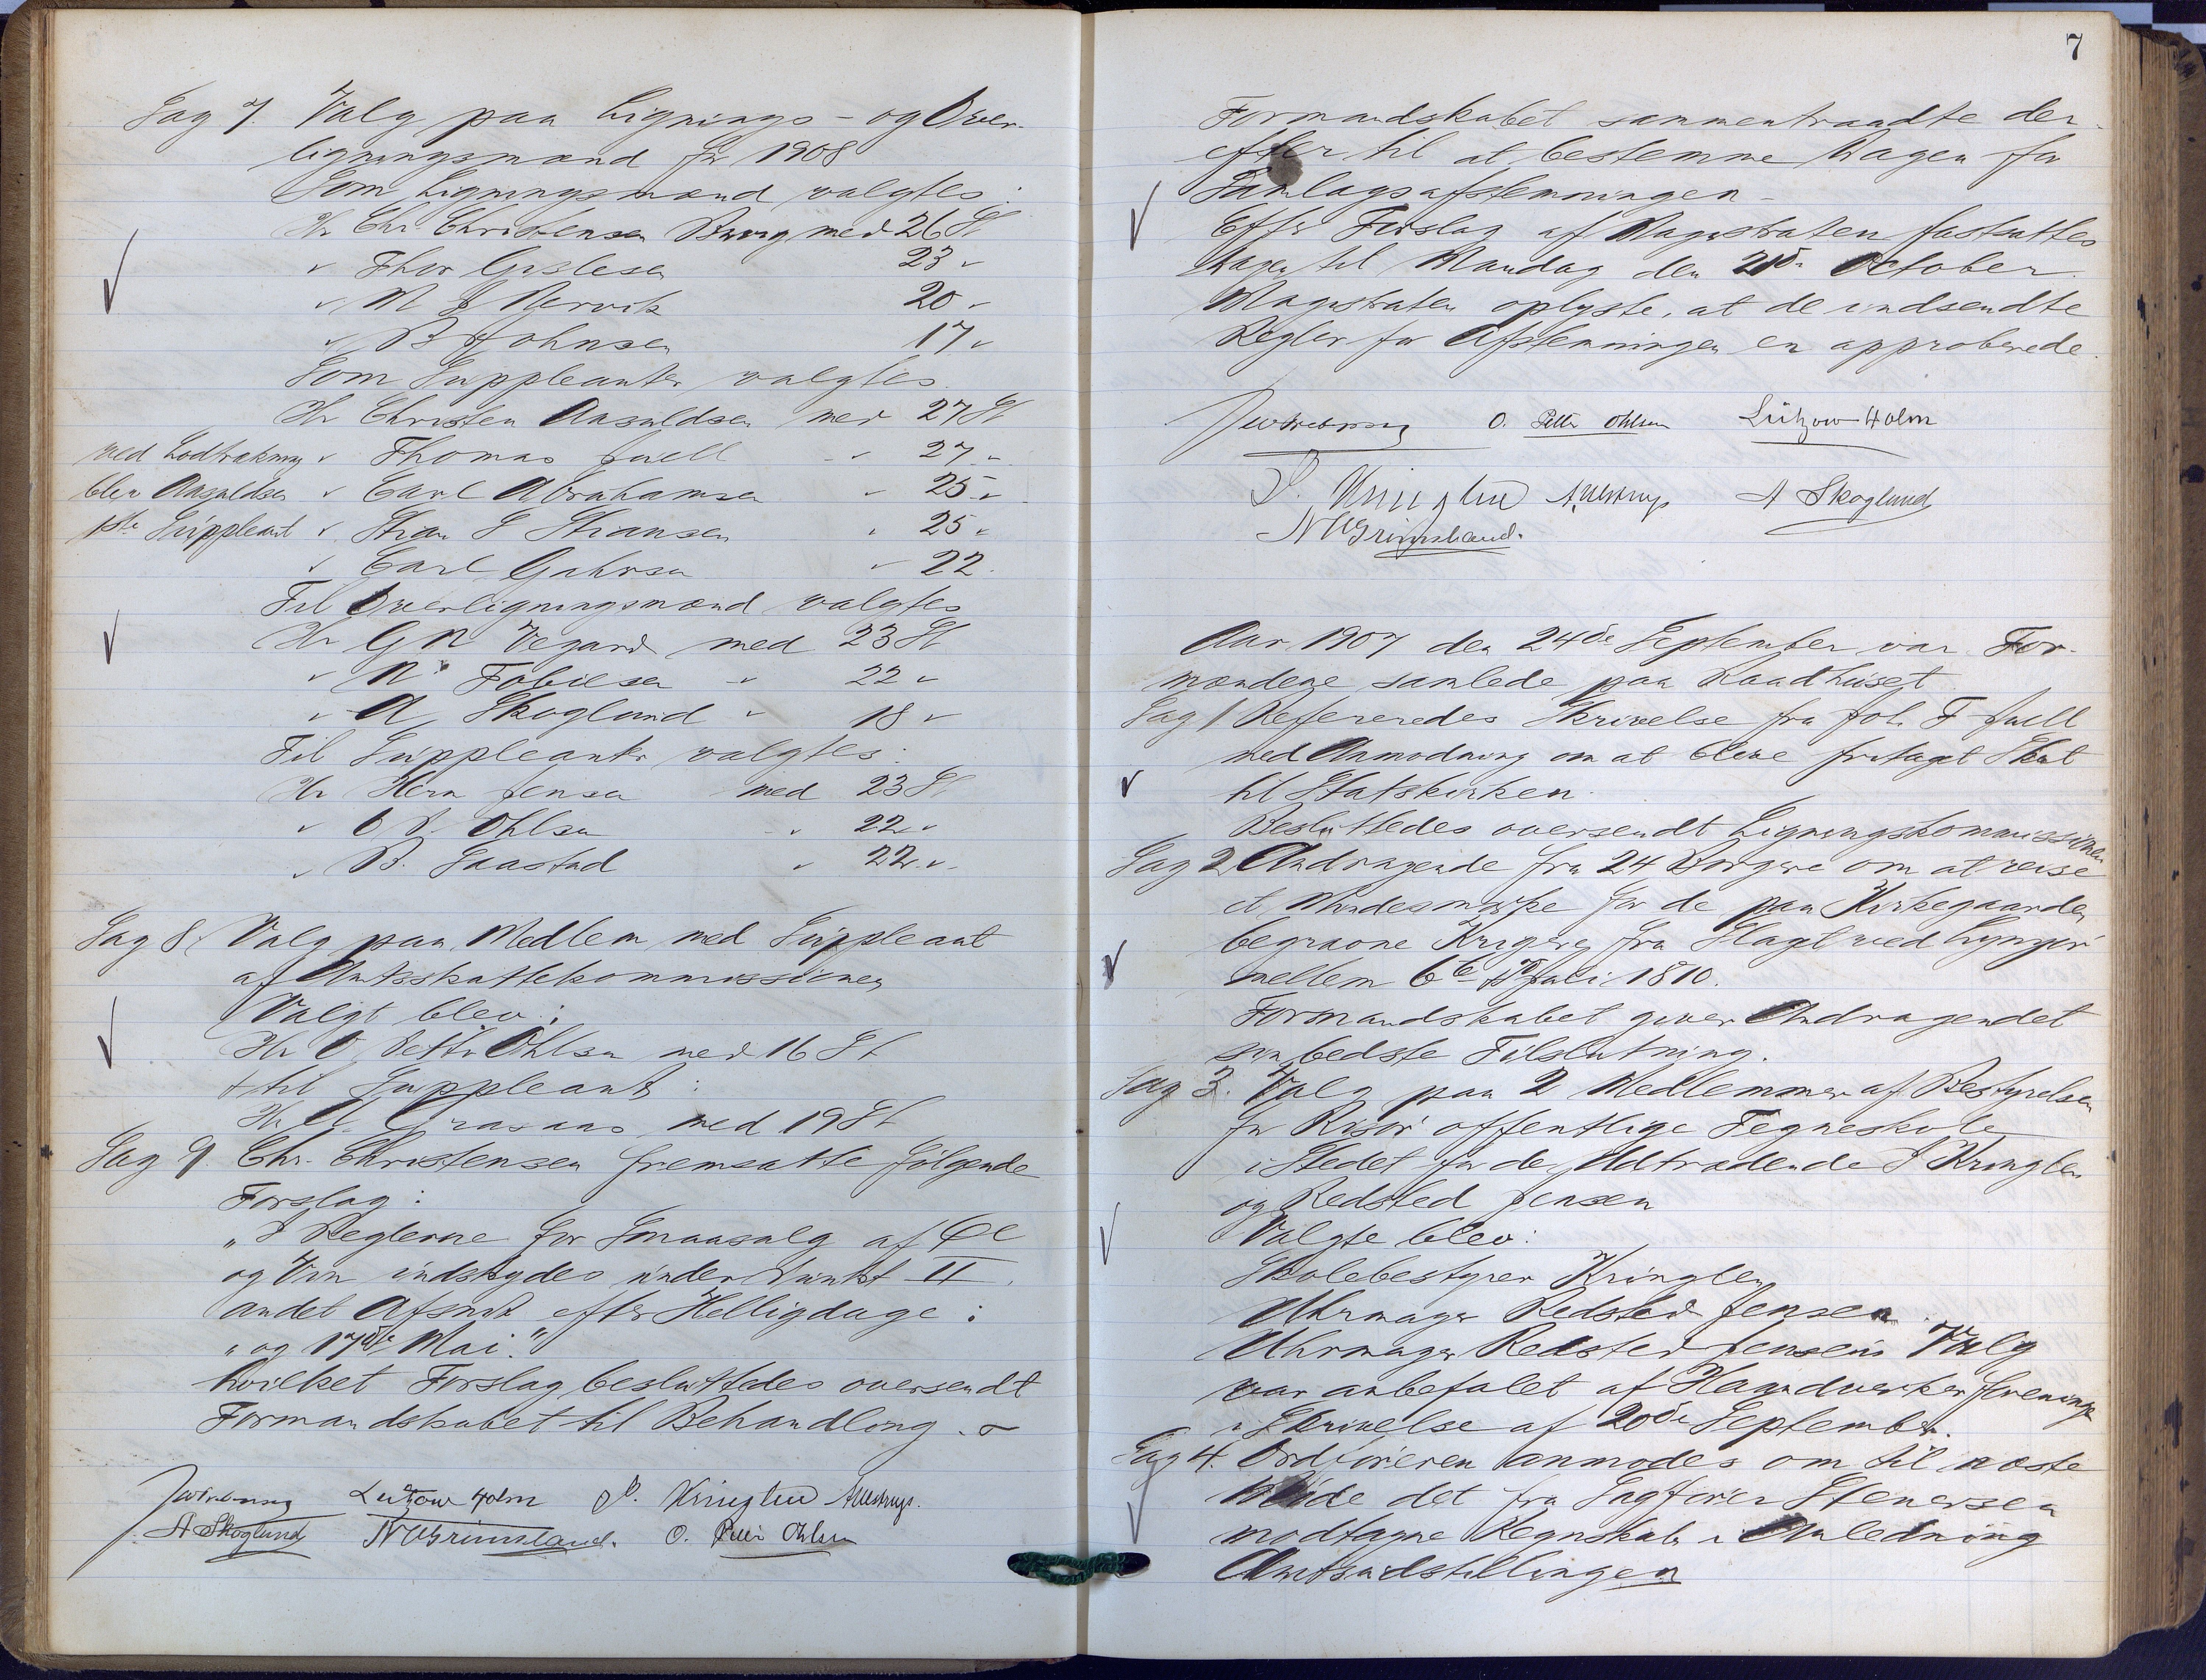 Sag 7. Valg paa Lignings- og Over-
ligningsmænd for 1908
Som Ligningsmænd valgtes:
Hr Chr. Christensen Bryg med 26 St
" Thor Gislesen 23 "
" N J Nervik 20 "
" B Johnsen 17 "
Som Suppleanter valgtes
Hr Christen Aasvaldsen med 27 St
ved Lodtrækning " Thomas Juell " 27 "
blev Aasvaldsen " Carl Abrahamsen " 25 "
1ste Suppleant " Stian S Stiansen " 25 "
" Carl " 22.
Til Overligningsmænd valgtes
Hr G N Vegard med 23 St
" N Tobiesen " 22 "
" A. Skoglund " 18 "
Til Suppleanter valgtes:
Hr Herm Jensen med 23 St
" O P. Ohlsen " 22 "
" B. Saastad " 22 "
Sag 8. Valg paa Medlem med Suppleant
af Amtsskattekommissionen
Valgt blev:
Hr O. Petter Ohlsen med 16 St
& til Suppleant:
Hr A. Graaaas med 19 St
Sag 9. Chr. Christensen fremsatte følgende
Forslag:
"I Reglerne for Smaasalg af Øl
og Vin indskydes under Punkt II.
andet Afsnit efter Helligdage:
"og 17de Mai."
hvilket Forslag besluttedes oversendt
Formandskabet til Behandling.
Lützow Holm P. Kringlen A Ullstrup.
A Skoglund N Grimsland. O. Petter Ohlsen
7
Formandskabet sammentraadte der-
efter til at bestemme Dagen for
Samlagsafstemningen -
Efter Forslag af Magistraten fastsattes
Dagen til Mandag den 21de October.
Magistraten oplyste, at de indsendte
Regler for Afstemningen er approberede.
O. Petter Ohlsen Lützow-Holm
P. Kringlen A Ullstrup A Skoglund
N Grimsland.
Aar 1907 den 24de September var For-
mændene samlede paa Raadhuset
Sag 1 Refereredes Skrivelse fra Joh. F Juell
med Anmodning om at blive fritaget Skat
til Statskirken.
Besluttedes oversendt Ligningskommissionen
Sag 2 Andragende fra 24 Borgere om at reise
et Mindesmærke for de paa Kirkegaarden
begravne Krigere fra Slaget ved Lyngør
mellem 6te - 7de Juli 1810.
Formandskabet giver Andragendet
sin bedste Tilslutning.
Sag 3. Valg paa 2 Medlemmer af Bestyrelsen
for Risør offentlige Tegneskole
i Stedet for de udtrædende P Kringlen
og Redsted Jensen
Valgte blev:
Skolebestyrer Kringlen
Uhrmager Redsted Jensen.
Uhrmager Redsted Jensens Valg
var anbefalet af Haandverkerforeningen
i Skrivelse af 20de September.
Sag 4. Ordføreren anmodes om til næste
Møde det fra Sagfører Stenersen
modtagne Regnskab i Anledning
Amtsudstillingen